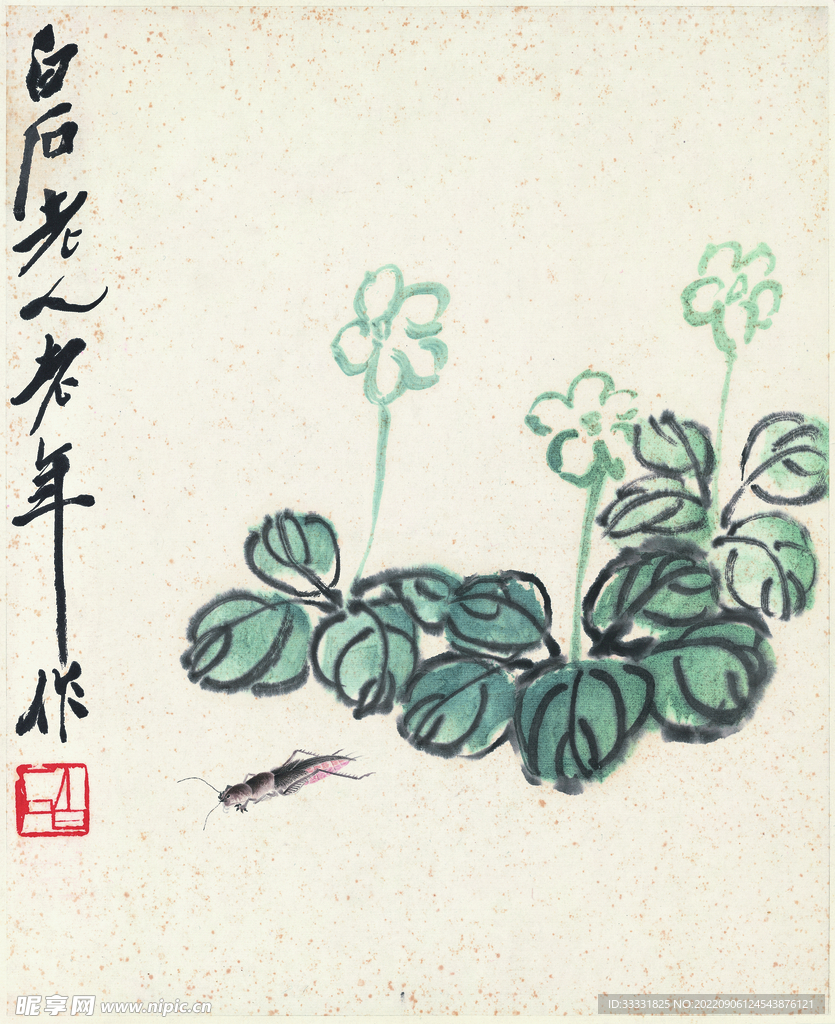 白石老人老年作
昵享网 www.nipic.cn
ID:33331825 NO:20220906124543876121